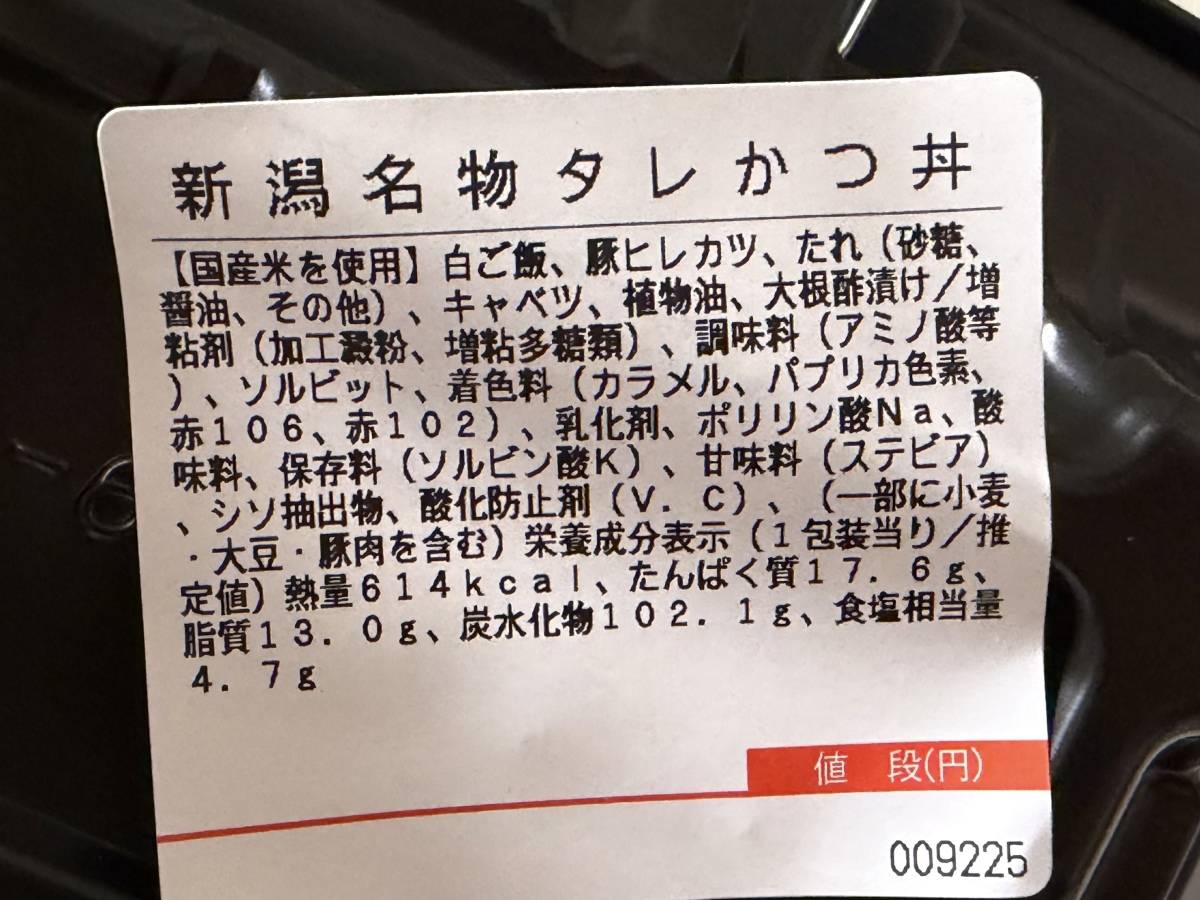 新潟名物タレかつ丼
【国産米を使用】白ご飯、豚ヒレカツ、たれ（砂糖、
醤油、その他）、キャベツ、植物油、大根酢漬け／増
粘剤（加工澱粉、増粘多糖類）、調味料（アミノ酸等
）、ソルビット、着色料（カラメル、パプリカ色素、
赤１０６、赤１０２）、乳化剤、ポリリン酸Ｎａ、酸
味料、保存料（ソルビン酸Ｋ）、甘味料（ステビア）
、シソ抽出物、酸化防止剤（Ｖ．Ｃ）、（一部に小麦
・大豆・豚肉を含む）栄養成分表示（１包装当り／推
定値）熱量６１４ｋｃａｌ、たんぱく質１７．６ｇ、
脂質１３．０ｇ、炭水化物１０２．１ｇ、食塩相当量
４．７ｇ
値 段(円)
009225